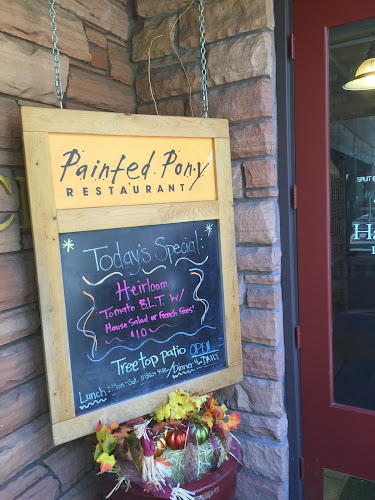 Painted Pony
RESTAURANT
Today's Special:
Heirloom
Tomato B.L.T. w/
House Salad or French Fries
$10
Tree top patio OPEN
Lunch: Mon-Sat. Dinner DAILY
SPLIT
Ha